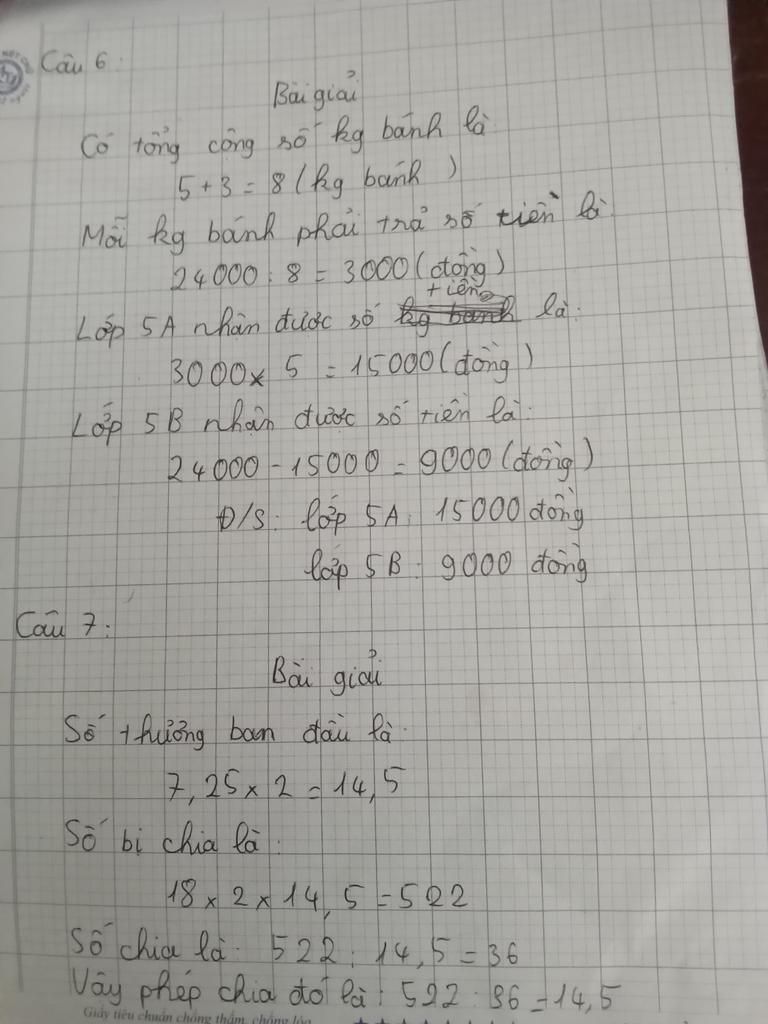 Câu 6:
Bài giải
Có tổng cộng số kg bánh là
5 + 3 = 8 (kg bánh)
Mỗi kg bánh phải trả số tiền là:
24000 : 8 = 3000 (đồng)
tiền
Lớp 5A nhận được số kg bánh là:
3000 x 5 = 15000 (đồng)
Lớp 5B nhận được số tiền là:
24000 - 15000 = 9000 (đồng)
Đ/S: lớp 5A: 15000 đồng
lớp 5B: 9000 đồng
Câu 7:
Bài giải
Số thương ban đầu là:
7,25 x 2 = 14,5
Số bị chia là:
18 x 2 x 14,5 = 522
Số chia là: 522 : 14,5 = 36
Vậy phép chia đó là: 522 : 36 = 14,5
Giấy tiêu chuẩn chống thấm, chống lóa